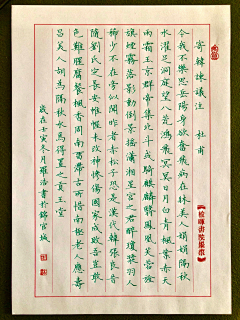 寄韓諫議注　杜甫
今我不樂思岳陽身欲奮飛病在牀美人娟娟隔秋
水濯足洞庭望八荒鴻飛冥冥日月白青楓葉赤天
雨霜玉京群帝集北斗或騎麒麟翳鳳凰芙蓉旌
旗煙霧落影動倒景搖瀟湘星宮之君醉瓊漿羽人
稀少不在旁似聞昨者赤松子恐是漢代韓張良昔
隨劉氏定長安帷幄未改神慘傷國家成敗吾豈敢
色難腥腐餐楓香周南留滯古所惜南極老人應壽
昌美人胡為隔秋水焉得置之貢玉堂
歲在壬寅冬月書於錦官城